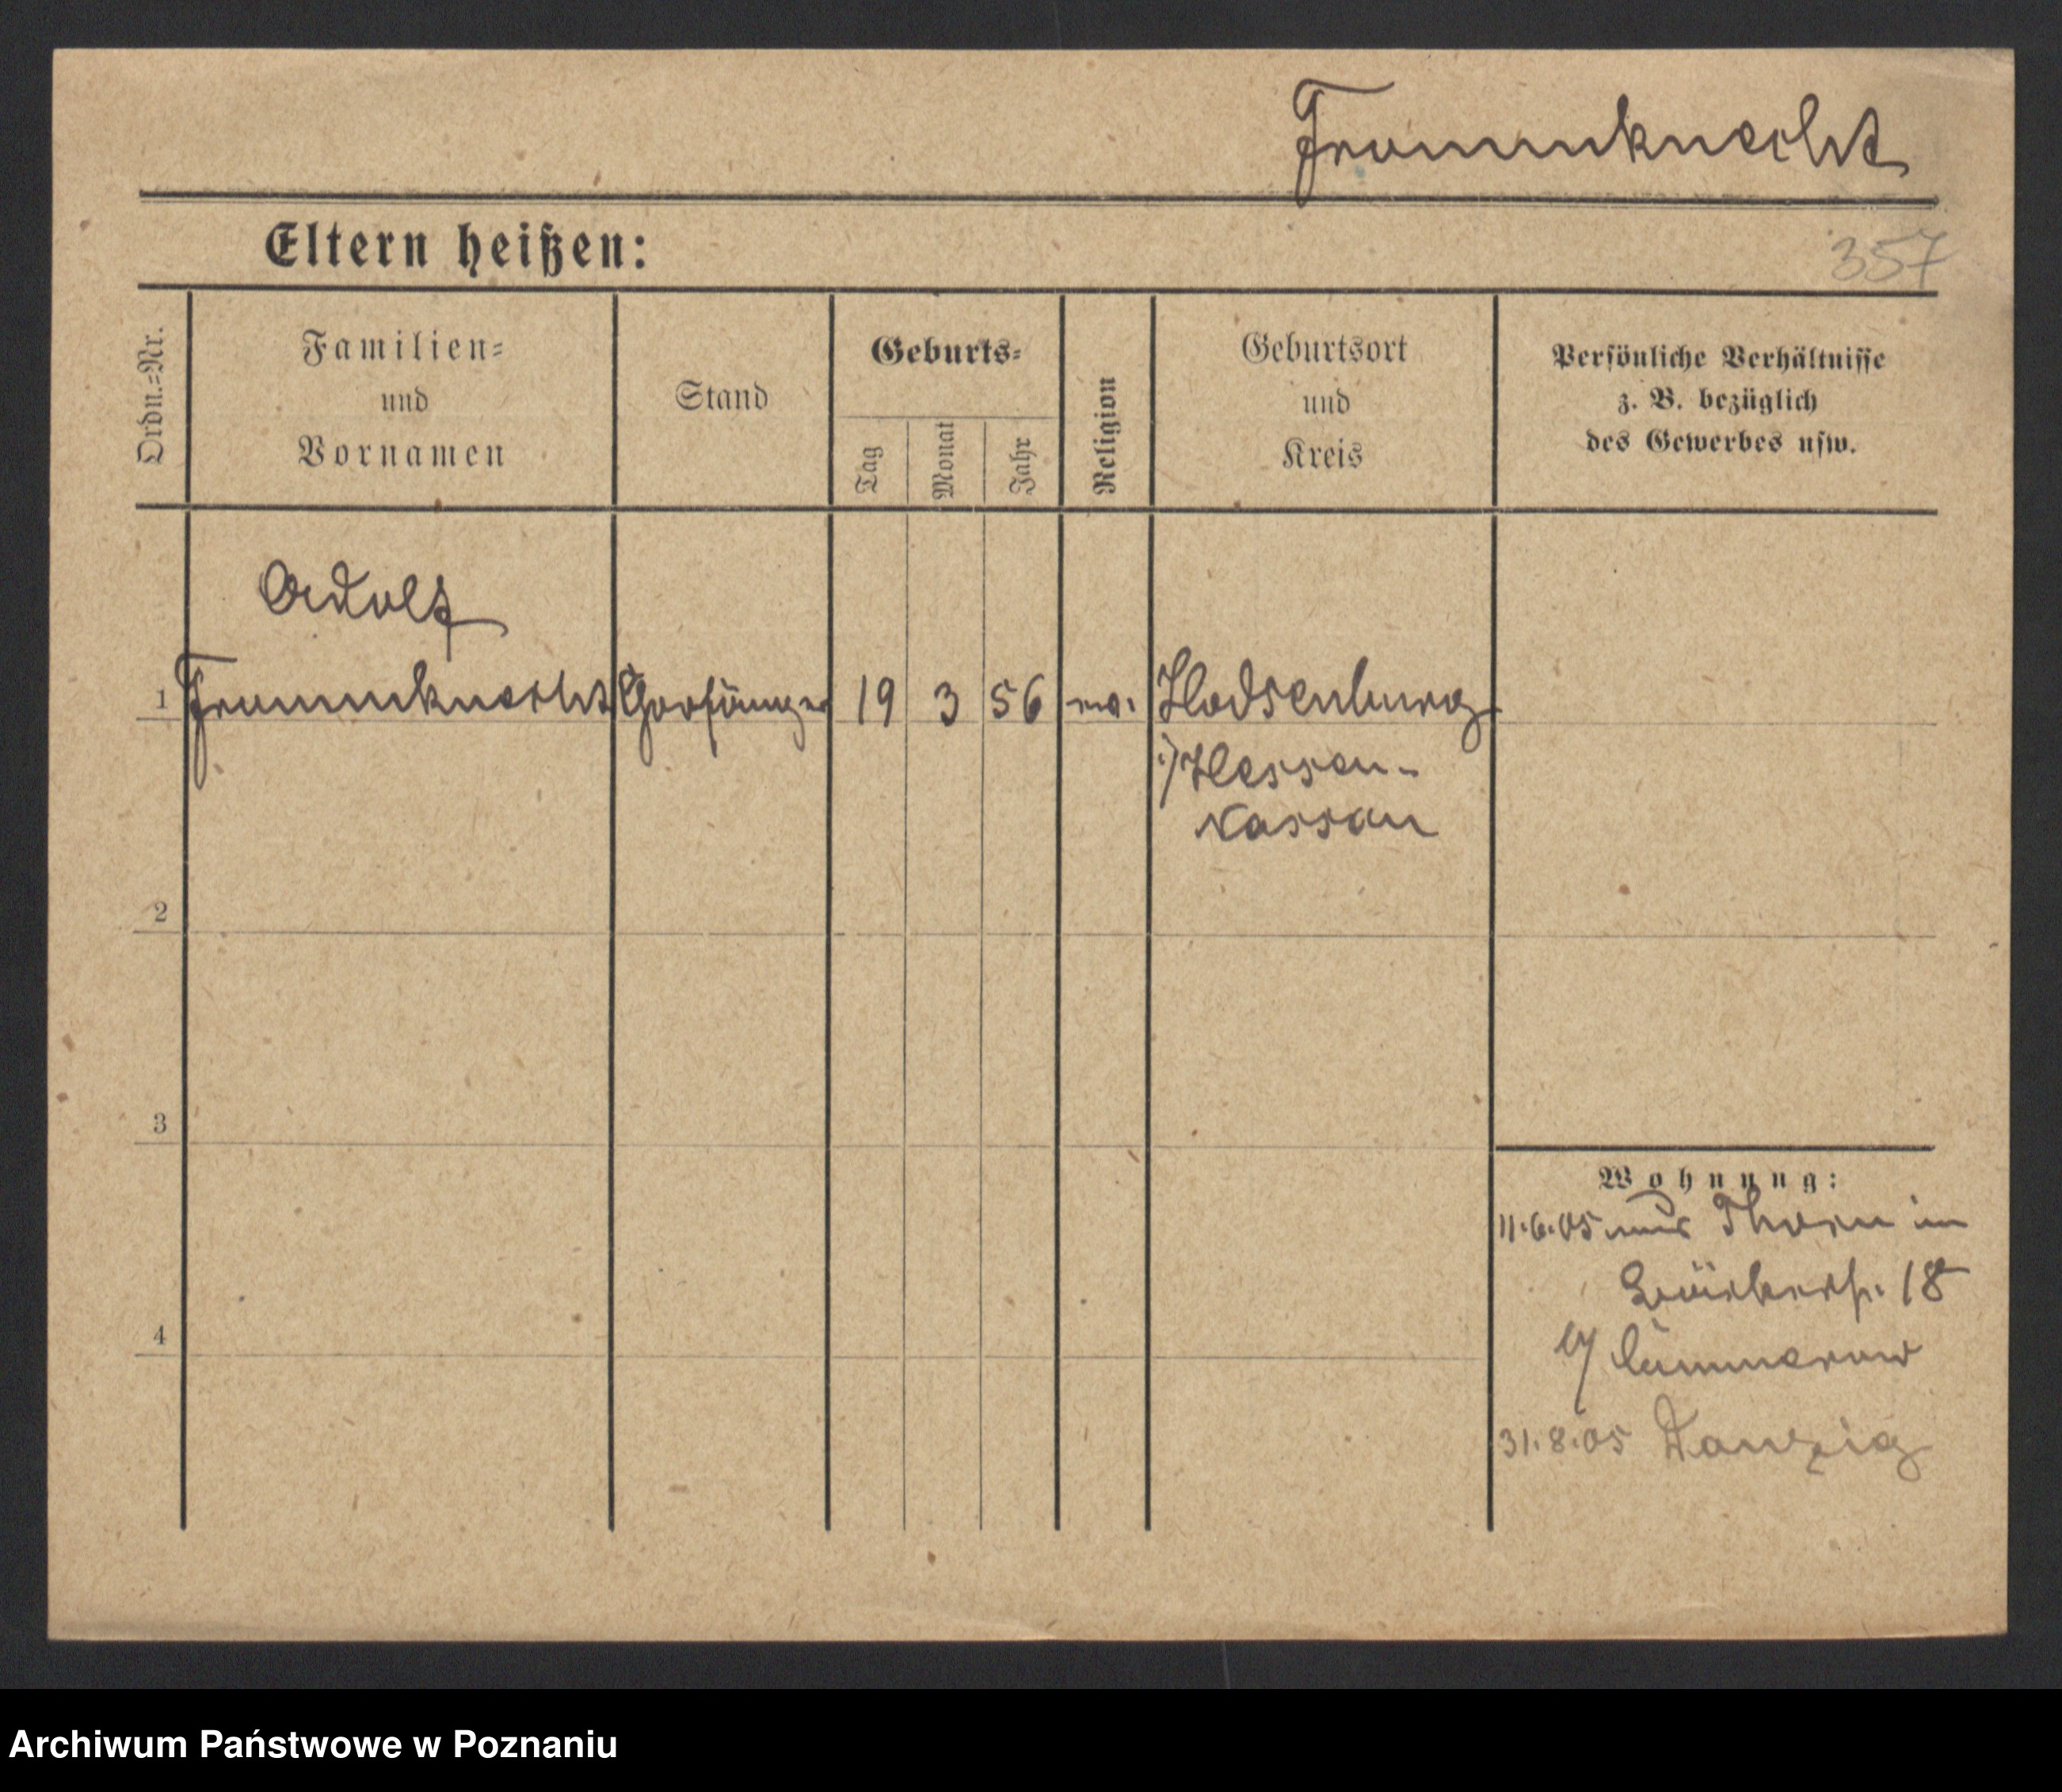 Frommknecht
Eltern heißen:
357
Ordn.=Nr.
Familien=
und
Vornamen
Stand
Geburts=
Tag
Monat
Jahr
Religion
Geburtsort
und
Kreis
Persönliche Verhältnisse
z. B. bezüglich
des Gewerbes usw.
Adolf
1 Frommknecht 19 3 56
i/Hessen-
Nassau
2
3
4
Wohnung:
11.6.05 aus Thorn in
18
b/ Cummerow
31.8.05 Danzig
Archiwum Państwowe w Poznaniu